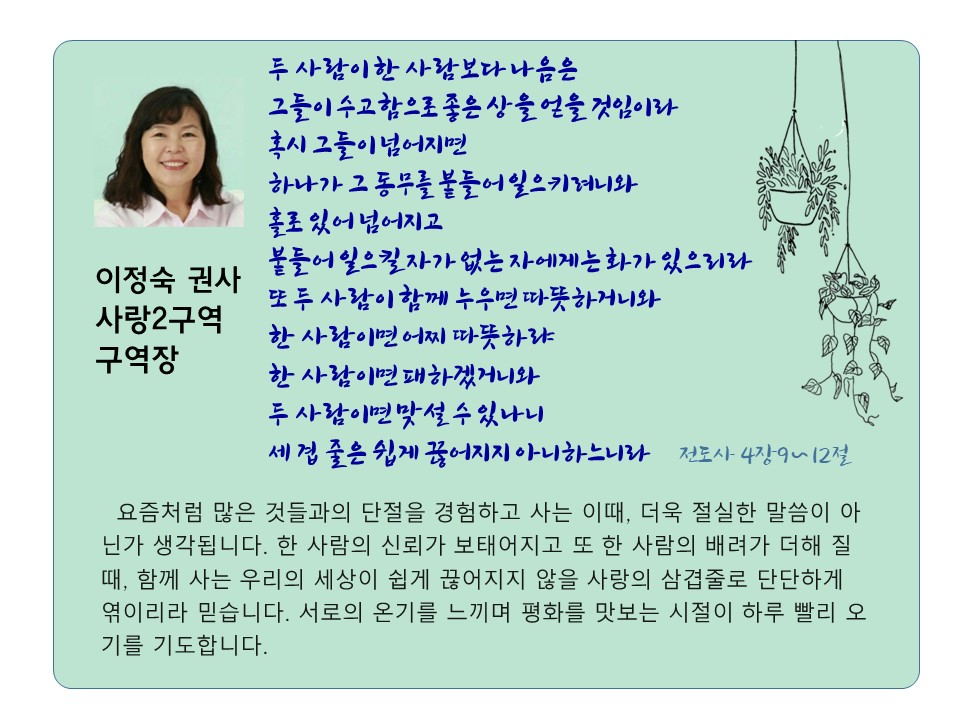 두 사람이 한 사람보다 나음은
그들이 수고함으로 좋은 상을 얻을 것임이라
혹시 그들이 넘어지면
하나가 그 동무를 붙들어 일으키려니와
홀로 있어 넘어지고
붙들어 일으킬 자가 없는 자에게는 화가 있으리라
또 두 사람이 함께 누우면 따뜻하거니와
한 사람이면 어찌 따뜻하랴
한 사람이면 패하겠거니와
두 사람이면 맞설 수 있나니
세 겹 줄은 쉽게 끊어지지 아니하느니라
전도사 4장9~12절
이정숙 권사
사랑2구역
구역장
요즘처럼 많은 것들과의 단절을 경험하고 사는 이때, 더욱 절실한 말씀이 아
닌가 생각됩니다. 한 사람의 신뢰가 보태어지고 또 한 사람의 배려가 더해 질
때, 함께 사는 우리의 세상이 쉽게 끊어지지 않을 사랑의 삼겹줄로 단단하게
엮이리라 믿습니다. 서로의 온기를 느끼며 평화를 맛보는 시절이 하루 빨리 오
기를 기도합니다.